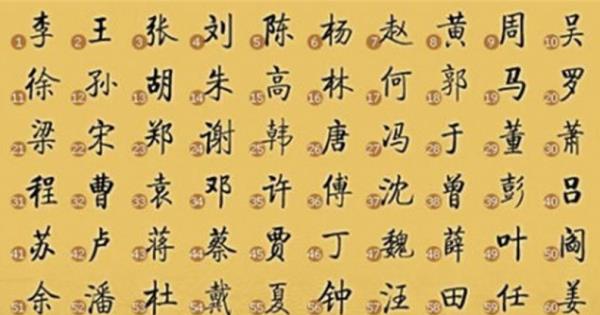 1李 2王 3张 4刘 5陈 6杨 7赵 8黄 9周 10吴
11徐 12孙 13胡 14朱 15高 16林 17何 18郭 19马 20罗
21梁 22宋 23郑 24谢 25韩 26唐 27冯 28于 29董 30萧
31程 32曹 33袁 34邓 35许 36傅 37沈 38曾 39彭 40吕
41苏 42卢 43蒋 44蔡 45贾 46丁 47魏 48薛 49叶 50阎
51余 52潘 53杜 54戴 55夏 56钟 57汪 58田 59任 60姜